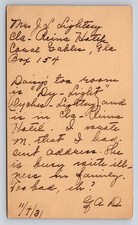 Mrs J "Lightsey
Clo- Reina Hotel
Coral Gables, Fla
Box 154
Daisy's too room
is "Dy-Light"
Lightsey and
is in Clo- Reina
Hotel. I wrote
M. that I had
sent address. She
is busy white ill-
ness in family.
Too bad, is?
G.A.D.
11/7/31